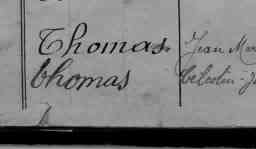 Thomas Jean Mar
thomas Célestin J